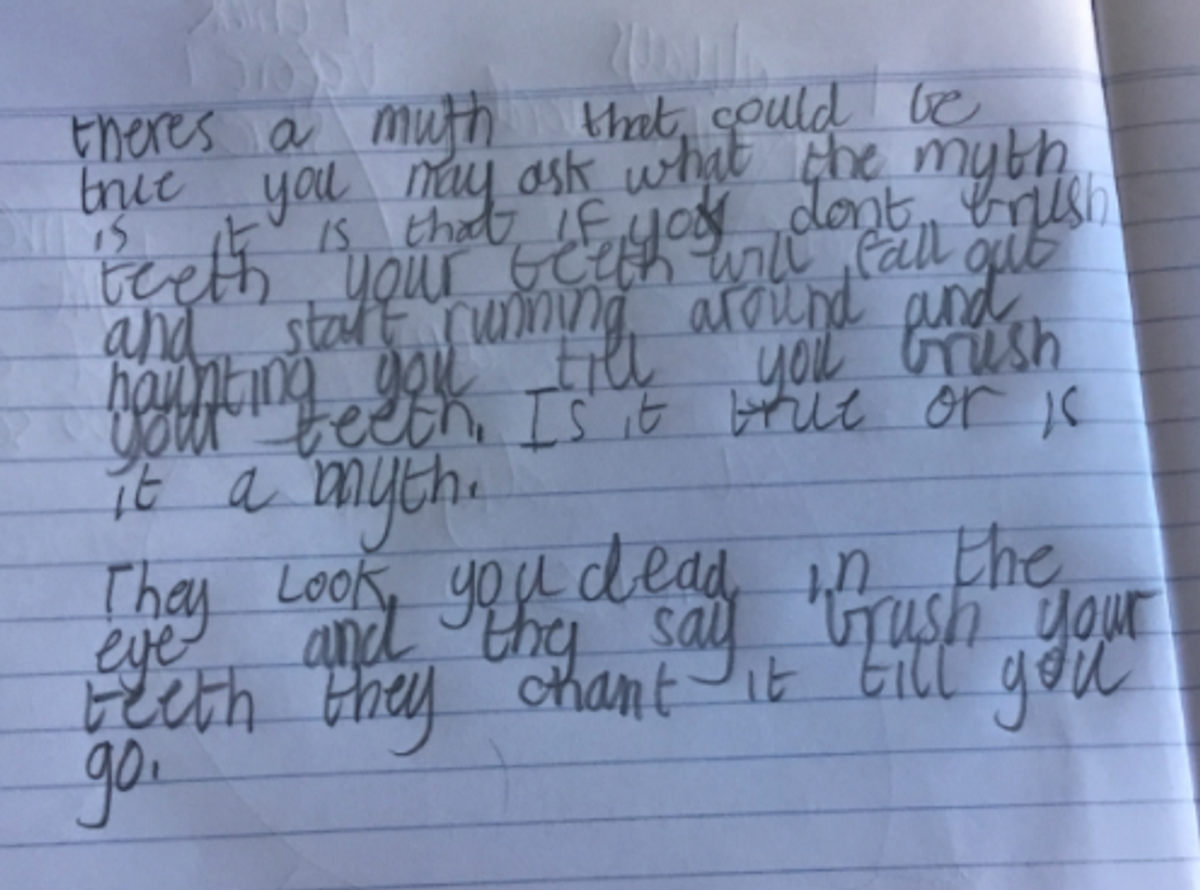 theres a muth that could be
true you may ask what the myth
is it is that if you dont brush
teeth your teeth will fall out
and start running around and
haunting you till you brush
your teeth. Is it true or is
it a myth.
They Look you dead in the
eye and thy say brush your
teeth they chant it till you
go.